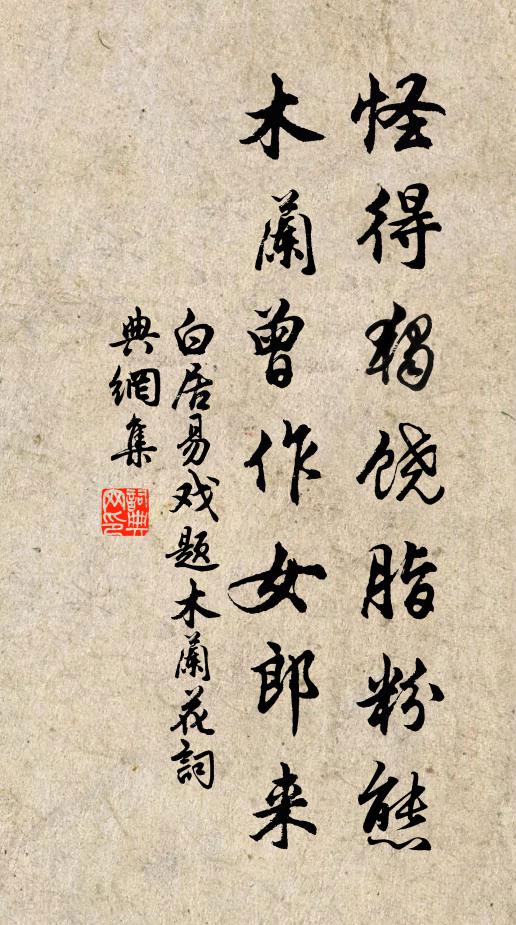 怪得独饶脂粉態
木蘭曾作女郎来
白居易戏题木蘭花詞
典網集
詞典网印